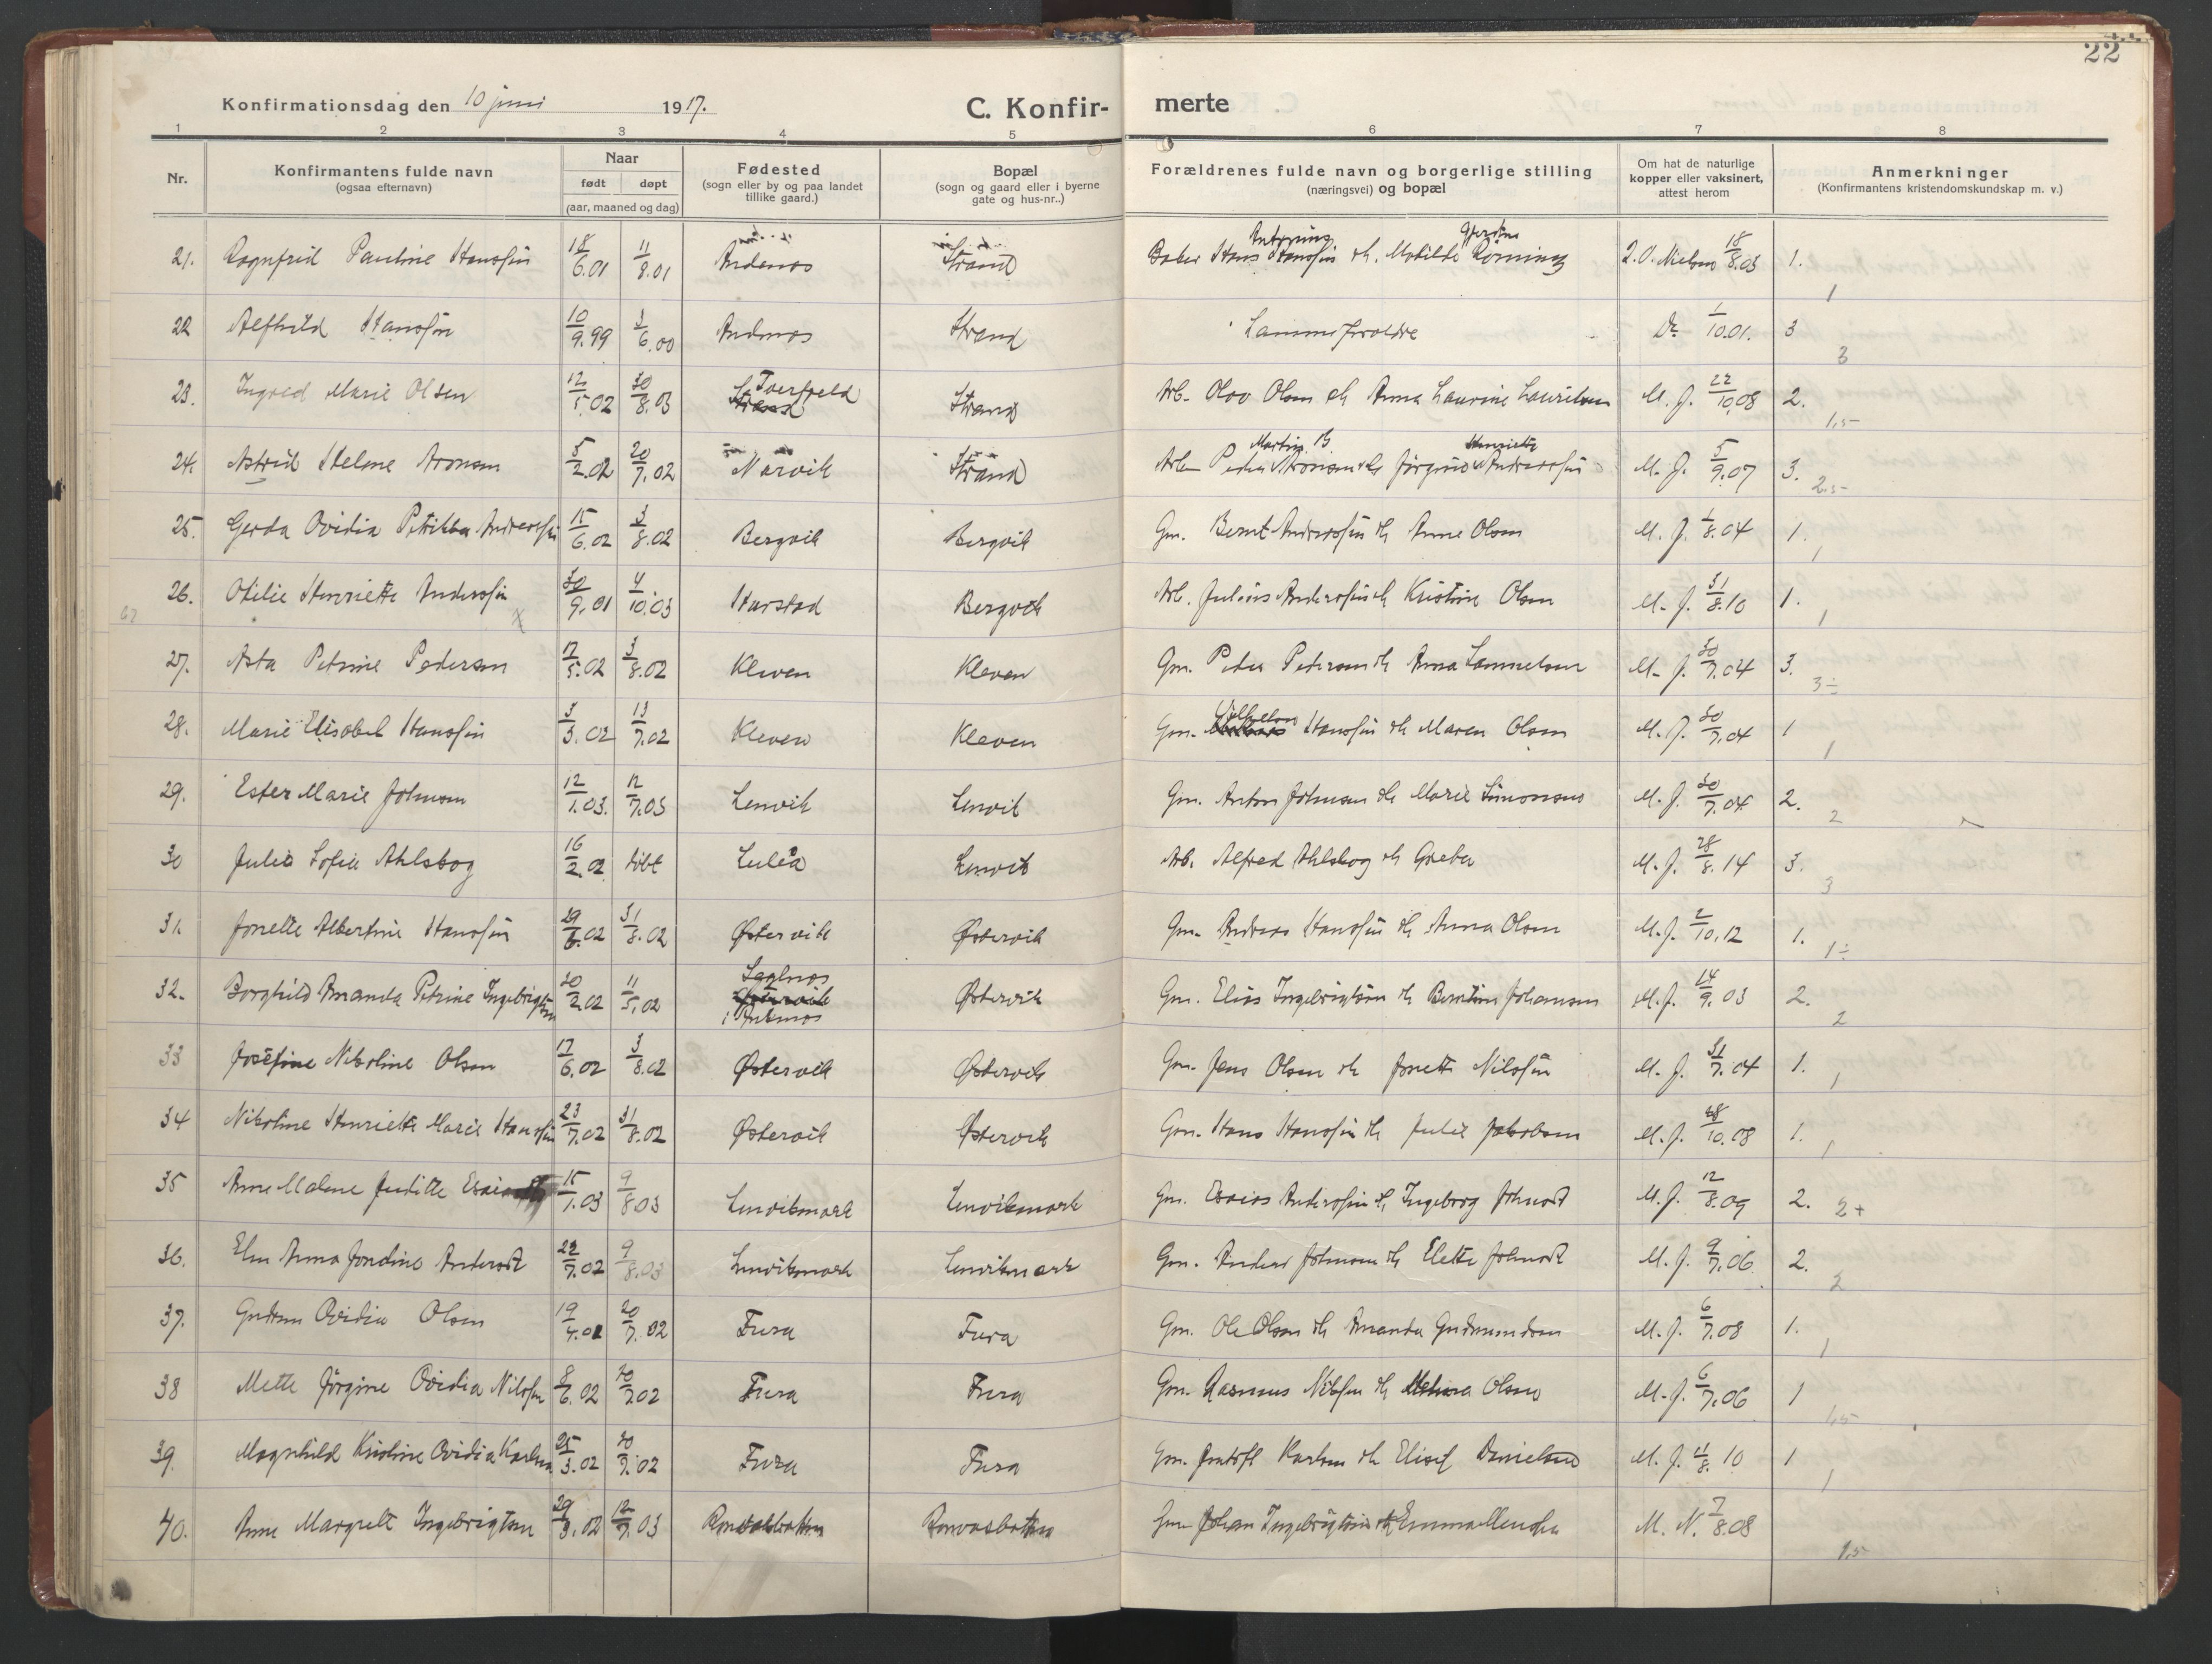 22
Konfirmationsdag den 10 juni 1917.
C. Konfir-
merte
1 2 3 4 5 6 7 8
Nr.
Konfirmantens fulde navn
(ogsaa efternavn)
Naar
født døpt
(aar, maaned og dag)
Fødested
(sogn eller by og paa landet
tillike gaard.)
Bopæl
(sogn og gaard eller i byerne
gate og hus-nr..)
Forældrenes fulde navn og borgerlige stilling
(næringsvei) og bopæl
Om hat de naturlige
kopper eller vaksinert,
attest herom
Anmerkninger
(Konfirmantens kristendomskundskap m. v.)
21. Ragnfrid Pauline Hansen 18/6.01 11/8.01 Andenes Strand Baker Hans Hansen & Matilde Rønning 18/8.03 1. 1
22 Alfhild Hansen 10/9.99 3/6.00 Andenes Strand Samme forældre Do 1/10.01. 3 3
23. Ingrid Marie Olsen 12/5.02 30/8.03 Strand Arb. Olav Olsen & Anna Laurine M. J. 22/10.08 2. 1,5
24. Astrid Helene Aronsen 5/2.02 20/7.02 Narvik Strand Martin B. Henriette Peder Aronsen & Jørgine Anderssen M. J. 5/9.07 3. 2.5
25. Gerda Ovidia Petrikka Anderssen 15/6.02 3/8.02 Bergvik Bergvik Gm. Bernt Anderssen & Anne Olsen M. J. 1/8.04 1. 1
26. Otilie Henriette Anderssen 30/9.01 4/10.03 Harstad Bergvik Arb. Julius Anderssen & Kristine Olsen M. J. 31/8.10 1. 1
27. Asta Petrine Pedersen 17/5.02 3/8.02 Kleven Kleven Gm. Peder Pedersen & Anna Samuelsen M. J. 30/7.04 3. 3÷
28. Marie Elisabet Hanssen 3/3.02 13/7.02 Kleven Kleven Gm. Vilhelm Hanssen & Maren Olsen M. J. 30/7.04 1 1
29. Ester Marie Johnsen 12/1.03. 12/7.03 Lenvik Lenvik Gm. Anton Johnsen & Marie Simonsen M. J. 30/7.04 2. 2
30 Julie Sofie Ahlsbog 16/2.02 døbt Luleå Lenvik Arb. Alfred Ahlsbog & Greta M. J. 28/8.14 3. 3
31. Jonette Albertine Hanssen 29/6.02 31/8.02 Østervik Østervik Gm. Andreas Hanssen & Anna Olsen M. J. 2/10.12 1. 1÷
32. Borghild Amanda Petrine Ingebrigtsen 20/2.02 11/5.02 Østervik Østervik Gm. Elias Ingebrigtsen & Berntine Johansen M. J. 14/9.03 2. 2
33 Josefine Nikoline Olsen 17/6.02 3/8.02 Østervik Østervik Gm. Jens Olsen & Jonette Nilssen M. J. 31/7.04 1. 1
34 Nikoline Henriette Marie Hanssen 23/7.02 31/8.02 Østervik Østervik Gm. Hans Hanssen & Julie Jakobsen M. J. 28/10.08 1. 1
35 Anne Malene Juditte 15/1.03 9/8.03 Lenvikmark Lenvikmark Gm. Esaias Anderssen & Ingeborg Johnsdt M. J. 12/8.09 2. 2+
36. Elen Anna Jondine Andersdt 22/7.02 9/8.03 Lenvikmark Lenvikmark Gm. Anders Johnsen & Elette Johnsdt M. J. 9/7.06 2. 2
37. Gudrun Ovidia Olsen 19/4.02 20/7.02 Fura Fura Gm. Ole Olsen & Amanda Gudmundsen M. J. 6/7.08 1. 1
38 Mette Jørgine Ovidia Nilssen 8/6.02 20/7.02 Fura Fura Gm. Rasmus Nilssen & Olsen M. J. 6/7.06 1 1,5
39. Magnhild Kristine Ovidia Karlsen 25/3.02 20/7.02 Fura Fura Gm. Karlsen & Elisef Danielsen M. J. 11/8.10 1 1
40. Anne Margrete Ingebrigtsen 29/3.02 12/7.03 Gm. Johan Ingebrigtsen & Emma M. N. 7/8.08 1,5